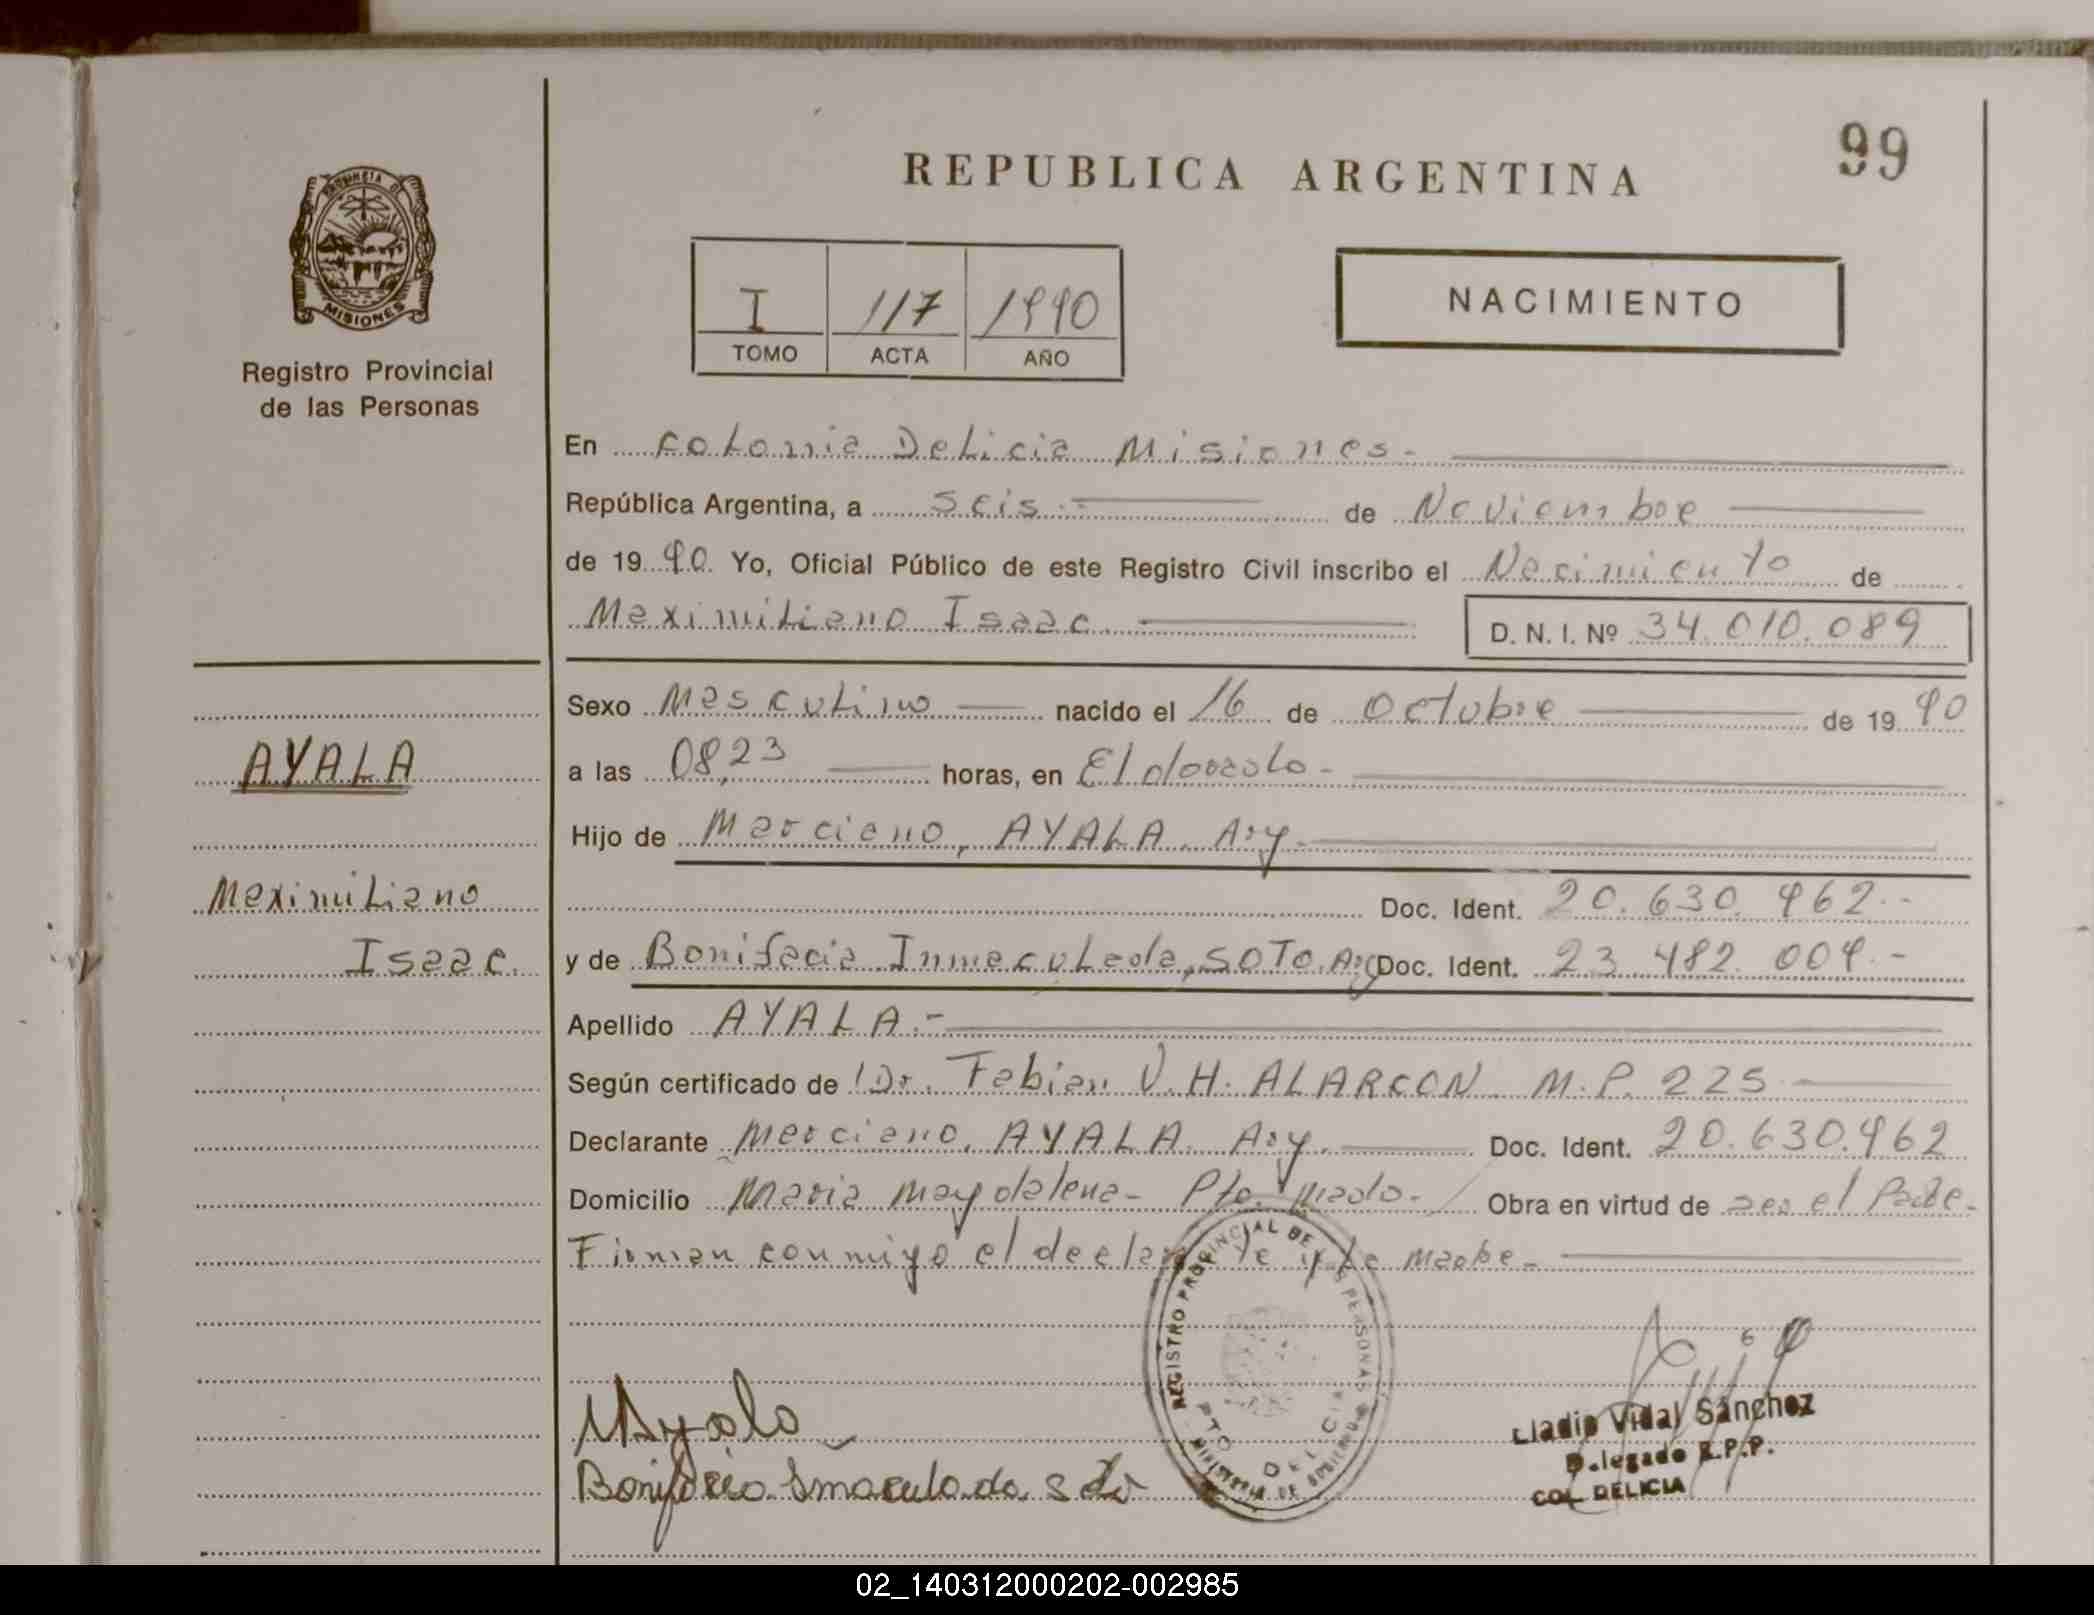 99
REPUBLICA ARGENTINA
PROVINCIA DE
MISIONES
Registro Provincial
de las Personas
I 117 1990
TOMO ACTA AÑO
NACIMIENTO
En Colonia Delicia Misiones.-
República Argentina, a seis.- de Noviembre
de 19 90. Yo, Oficial Público de este Registro Civil inscribo el Nacimiento de
Maximiliano Isaac. D. N. I. Nº 34.010.089
Sexo Masculino nacido el 16 de Octubre de 19 90
AYALA
a las 08,23 horas, en Eldorado.-
Hijo de Marciano, AYALA. Arg.
Maximiliano
Isaac.
Doc. Ident. 20.630.962.-
y de Bonifacia Inmaculada, SOTO. Arg Doc. Ident. 23.482.009.-
Apellido AYALA.-
Según certificado de Dr. Fabian V. H. ALARCON. M.P. 225.
Declarante Marciano, AYALA. Arg. Doc. Ident. 20.630.962
Domicilio Maria Magdalena- Pto Mado.- Obra en virtud de ser el Padre.-
Firman conmigo el declarante y la madre.-
MAyala
Bonifacia Imaculada Soto
REGISTRO PROVINCIAL DE LAS PERSONAS
PTO DELICIA
MINISTERIO DE GOBIERNO
Eladio Vidal Sanchez
Delegado R.P.P.
COL DELICIA
02_140312000202-002985